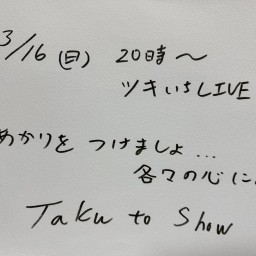 3/16(日) 20時〜
ツキいちLIVE
あかりを つけましょ...
各々の心に
Taku to Show